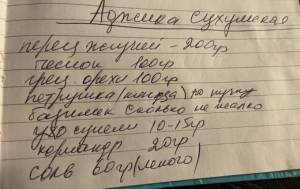 Аджика сухумская
перец жгучий - 200гр
чеснок 100гр
грец орехи 100гр
петрушка (кинза) по пучку
базилик сколько не жалко
уцхо сунели 10-15гр
кориандр 20гр
соль 60гр